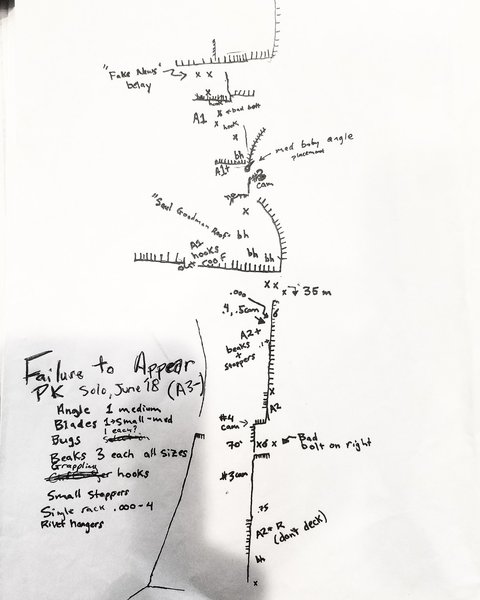 "Fake News"
belay
x x
x
hook
A1
x ← bad bolt
x
hook
x
bh
A1+
med baby angle
placement
#3
cam
x
"Saul Goodman Roof"
bh
A2
hooks
out roof
bh
bh
x x
x ↓ 35 m
.000
.4, .5 cam
A2+
beaks
+
stoppers
.1
x
A2
#4
cam
70'
x6 x
Bad
bolt on right
#3 cam
.75
A2+ R
(don't deck)
bh
x
Failure to Appear
PK Solo, June '18 (A3-)
Angle 1 medium
Blades 1 small-med
Bugs 1 each?
Beaks 3 each all sizes
Grappling
hooks
Small stoppers
Single rack .000-4
Rivet hangers